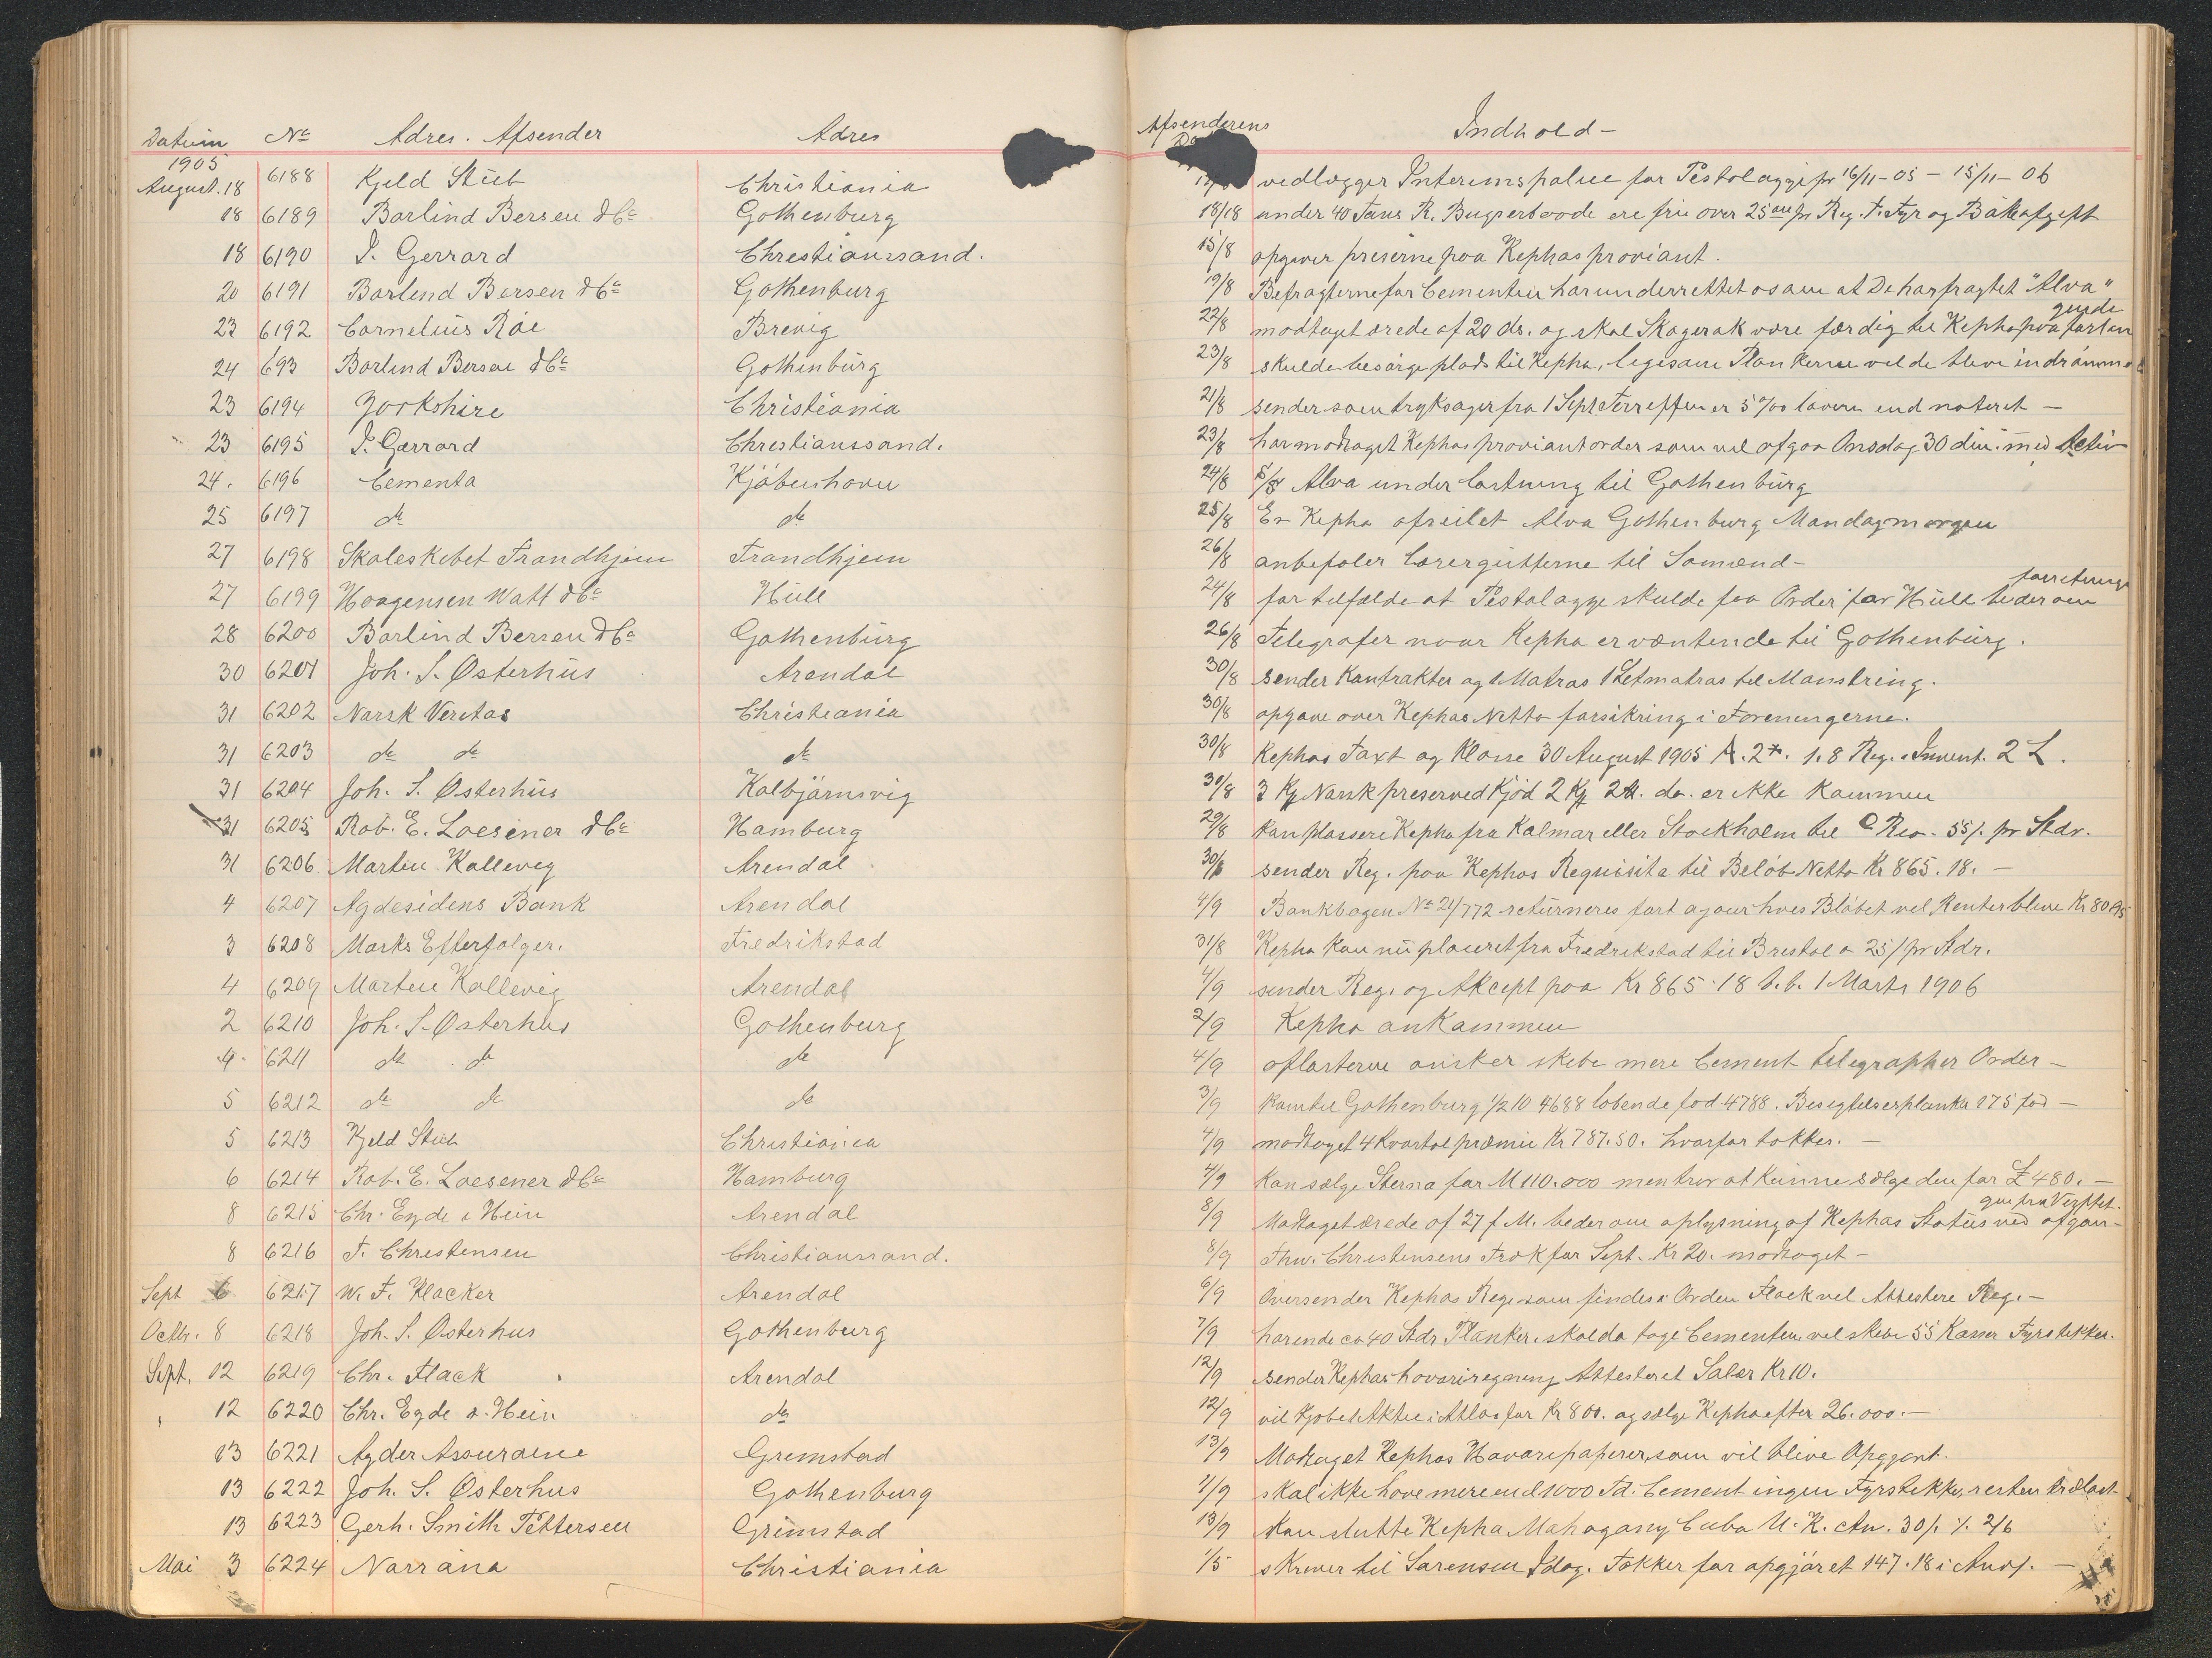 Datum No Adres. Afsender Adres Afsenderens Indhold -
1905
August. 18 6188 Kjeld Stub Christiania vedlægger Interimspolice for Pestolaggi pr 16/11-05 - 15/11-06
18 6189 Barlind Bersen & Co Gothenburg 18/18 under 40 Tons R. Bugserbaade ere frie over 25 øre pr Reg. T. Fyr og Bakeafgift
18 6190 I. Gerrard Christianssand. 15/8 opgiver preserne paa Kephas proviant.
20 6191 Barlend Bersen & Co Gothenburg 19/8 Befragterne for Cementen har underrettet os om at De har fragtet "Alva"
23 6192 Cornelius Röe Brevig 22/8 modtaget ærede af 20 ds. og skal Skagerak være færdig til Kepha paa forlan
gende
24 693 Barlind Bersen & Co Gothenburg 23/8 skulde besørge plads til Kepha, ligesom Plankerne vil de blive indrömmet
23 6194 Yorkshire Christiania 21/8 sender som tryksager fra 1 Sept Terreffen er 5 % lavere end noteret -
23 6195 I. Gerrard Christianssand. 23/8 har modtaget Kephas proviantorder som vil afgaa Onsdag 30 din. med Activ
24. 6196 Cementa Kjöbenhavn 24/8 S/S Alva under lastning til Gothenburg
25 6197 do do 25/8 Er Kepha afseilet Alva Gothenburg Mandagmorgen
27 6198 Skoleskibet Trondhjem Trondhjem 26/8 anbefaler Lærergutterne til Sömænd -
27 6199 Haagensen Watt & Co Hull 24/8 for tilfælde at Pestolagge skulde faa Order for Hull beder om
forretning
28 6200 Barlind Bersen & Co Gothenburg 26/8 Telegrafer naar Kepha er væntende til Gothenburg.
30 6201 Joh. S. Østerhus Arendal 30/8 sender Kontrakter og 1 Matros 1 Letmatros til Mönstring.
31 6202 Norsk Veritas Christiania 30/8 opgave over Kephas Netto forsikring i Foreningerne.
31 6203 do do do 30/8 Kephas Taxt og Klasse 30 August 1905 A. 2*. 1. 8 Reg. Invent. 2 L.
31 6204 Joh. S. Østerhus Kolbjörnsvig 30/8 3 Kg Norsk preserved Kjöd 2 Kg 2. do. er ikke kommen
31 6205 Rob. E. Loesener & Co Hamburg 29/8 Kan plassere Kepha fra Kalmar eller Stockholm til Rio. 55/. pr Stdr.
31 6206 Marten Kallevig Arendal 30/8 sender Reg. paa Kephas Requisita til Belöb Netto Kr 865. 18. -
4 6207 Agdesidens Bank Arendal 4/9 Bankbogen No 21/772 returneres fört ajour hves Blöbet vel Renter blive Kr 80 95
3 6208 Marks Efterfolger. Fredrikstad 31/8 Kepha kan nu placeret fra Fredrikstad til Bristol a 25/ pr Stdr.
4 6209 Marten Kallevig Arendal 4/9 sender Reg. og Akcept paa Kr 865. 18 d.d. 1 Marts 1906
2 6210 Joh. S. Østerhus Gothenburg 2/9 Kepha ankommen
4. 6211 do do do 4/9 aflasterne önsker skibe mere Cement telegrapher Order -
5 6212 do do do 3/9 Kom til Gothenburg 1/2 10 4688 löbende fod 4788. Besegtelserplanka 175 fod -
5 6213 Kjeld Stub Christiania 4/9 modtaget 4 Kvartal præmie Kr 787. 50. hvorfor takkes. -
6 6214 Rob. E. Loesener & Co Hamburg 4/9 Kan sælge Sterna for M 110.000 men tror at kunne sælge den for £ 480. -
8 6215 Chr. Eyde & Hein Arendal 8/9 Modtaget ærede af 27 f. M. beder om oplysning af Kephas Status ved afgan-
gen fra Vigstet.
8 6216 T. Christensen Christianssand. 8/9 Thv. Christensens Træk for Sept. Kr 20. modtaget -
Sept 6 6217 W. F. Klacker Arendal 6/9 Oversender Kephas Reg. som findes i Orden Flack vel Attestere Reg. -
Octb. 8 6218 Joh. S. Østerhus Gothenburg 7/9 har inde ca 40 Stdr Planker, skal da tage Cementen vel skibe 55 Kasser Fyrstikker.
Sept. 12 6219 Chr. Flack Arendal 12/9 sender Kephas havariregning Attesteret Salær Kr 10.
" 12 6220 Chr. Eyde & Hein do 12/9 vil Kjöbe 1 Aktie i Atlas for Kr 800. og sælge Kepha efter 26.000. -
13 6221 Agder Assurance Grimstad 13/9 Modtaget Kephas Havaripapirer, som vil blive Opgjort.
13 6222 Joh. S. Østerhus Gothenburg 11/9 skal ikke have mere end 1000 Td. Cement ingen Fyrstikke, resten Trælast
13 6223 Gerh. Smith Pettersen Grimstad 13/9 Kan slutte Kepha Mahogany Cuba U. K. Cn. 30/. %. 2/6
Mai 3 6224 Norröna Christiania 1/5 skriver til Sørensen Idag. Takker for opgjöret 147. 18 i Anvs. -